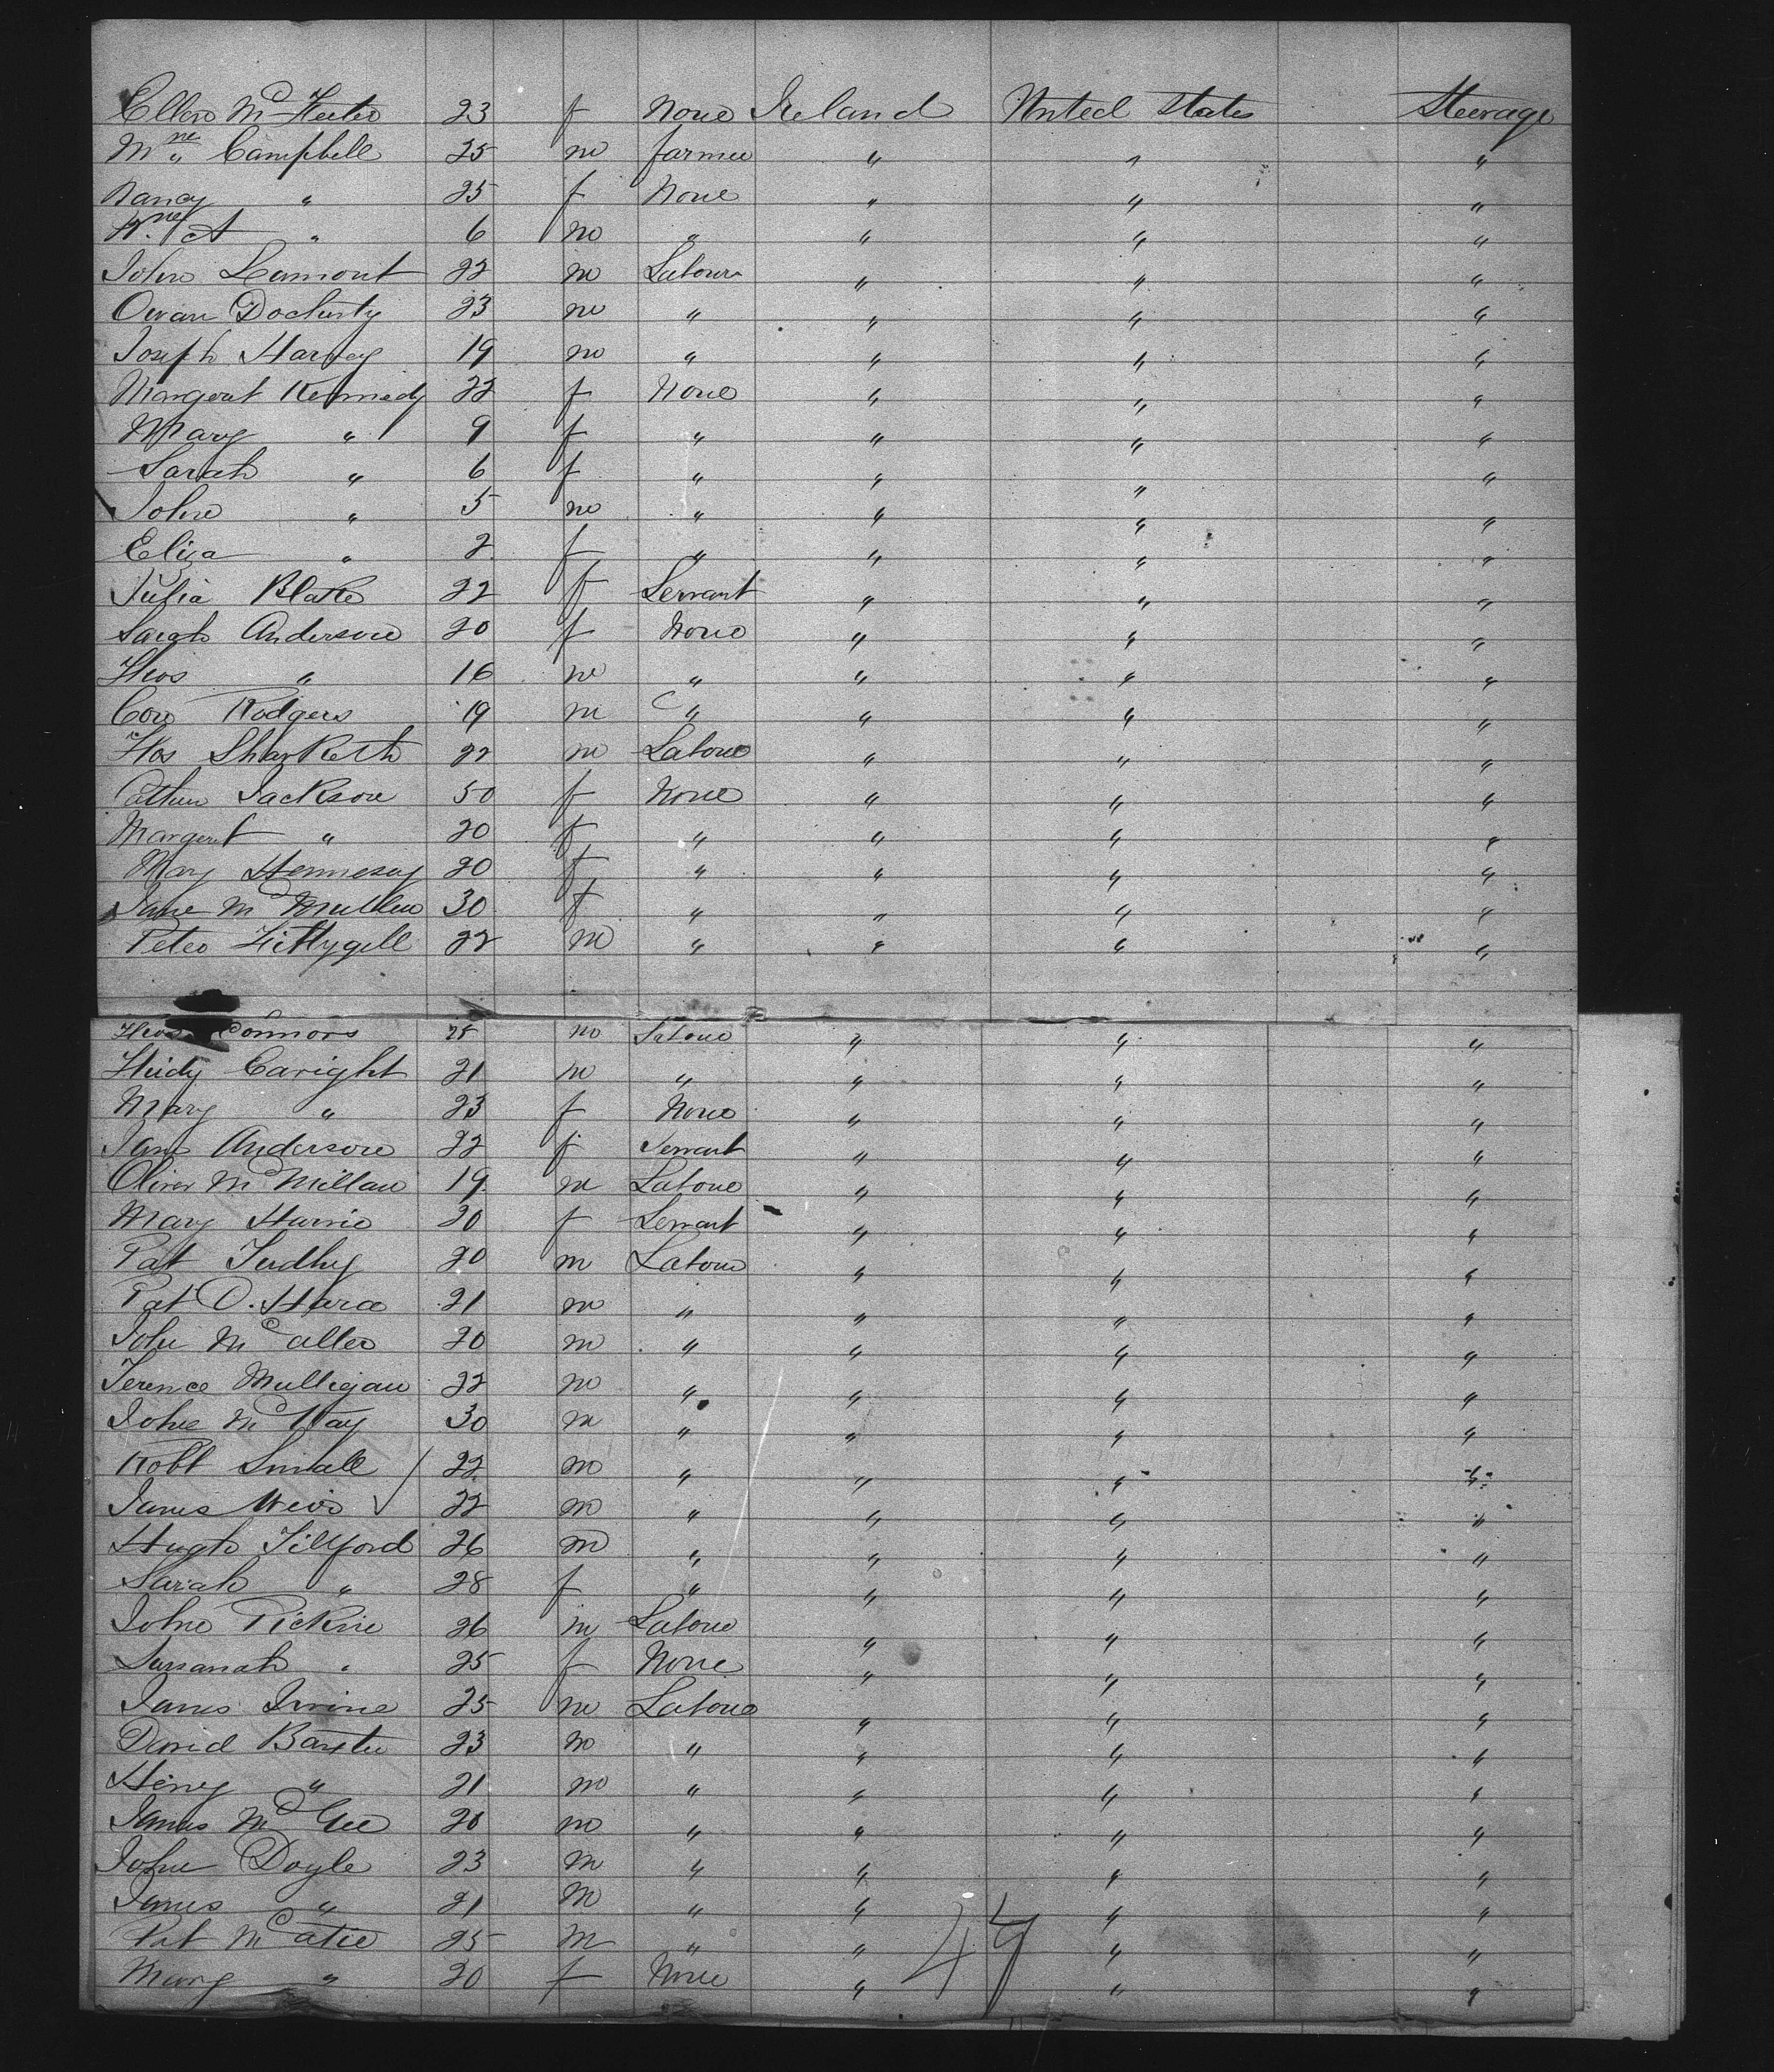 Ellen Mc 23 f None Ireland United States Steerage
Campbell 25 m farmer " " "
Nancy " 25 f None " " "
A " 6 m " " " "
John Lamont 22 m Labour " " "
Owan Docherty 23 m " " " "
Joseph Harvey 19 m " " " "
Margeret Kennedy 22 f None " " "
Mary " 9 f " " " "
Sarah " 6 f " " " "
John " 5 m " " " "
Eliza " 2 f " " " "
Julia Blake 22 f Servant " " "
Sarah Anderson 20 f None " " "
Thos " 16 m " " " "
Con Rodgers 19 m " " " "
Thos Sharketh 22 m Labour " " "
Jackson 50 f None " " "
Margaret " 20 f " " " "
Mary Hennesay 20 f " " " "
Jane Mc Mullen 30 f " " " "
Peter 22 m " " " "
Thos Connors 25 m Labour " " "
Caright 21 m " " " "
Mary " 23 f None " " "
Jane Anderson 22 f Servant " " "
Oliver Mc Millan 19 m Labour " " "
Mary 20 f Servant " " "
Pat 20 m Labour " " "
Pat O. Hara 21 m " " " "
John Mc aller 20 m " " " "
Terence Mulligan 22 m " " " "
John Mc Kay 30 m " " " "
Robt Small 22 m " " " "
James Weir 22 m " " " "
Hugh Tilford 26 m " " " "
Sarah " 28 f " " " "
John Pickin 26 m Labour " " "
Susanah " 25 f None " " "
James Irvine 25 m Labour " " "
David Baxter 23 m " " " "
Henry " 21 m " " " "
James Mc Gee 20 m " " " "
John Doyle 23 m " " " "
James " 21 m " " " "
Pat Mc atee 25 m " " " "
Mary " 20 f None " " "
47